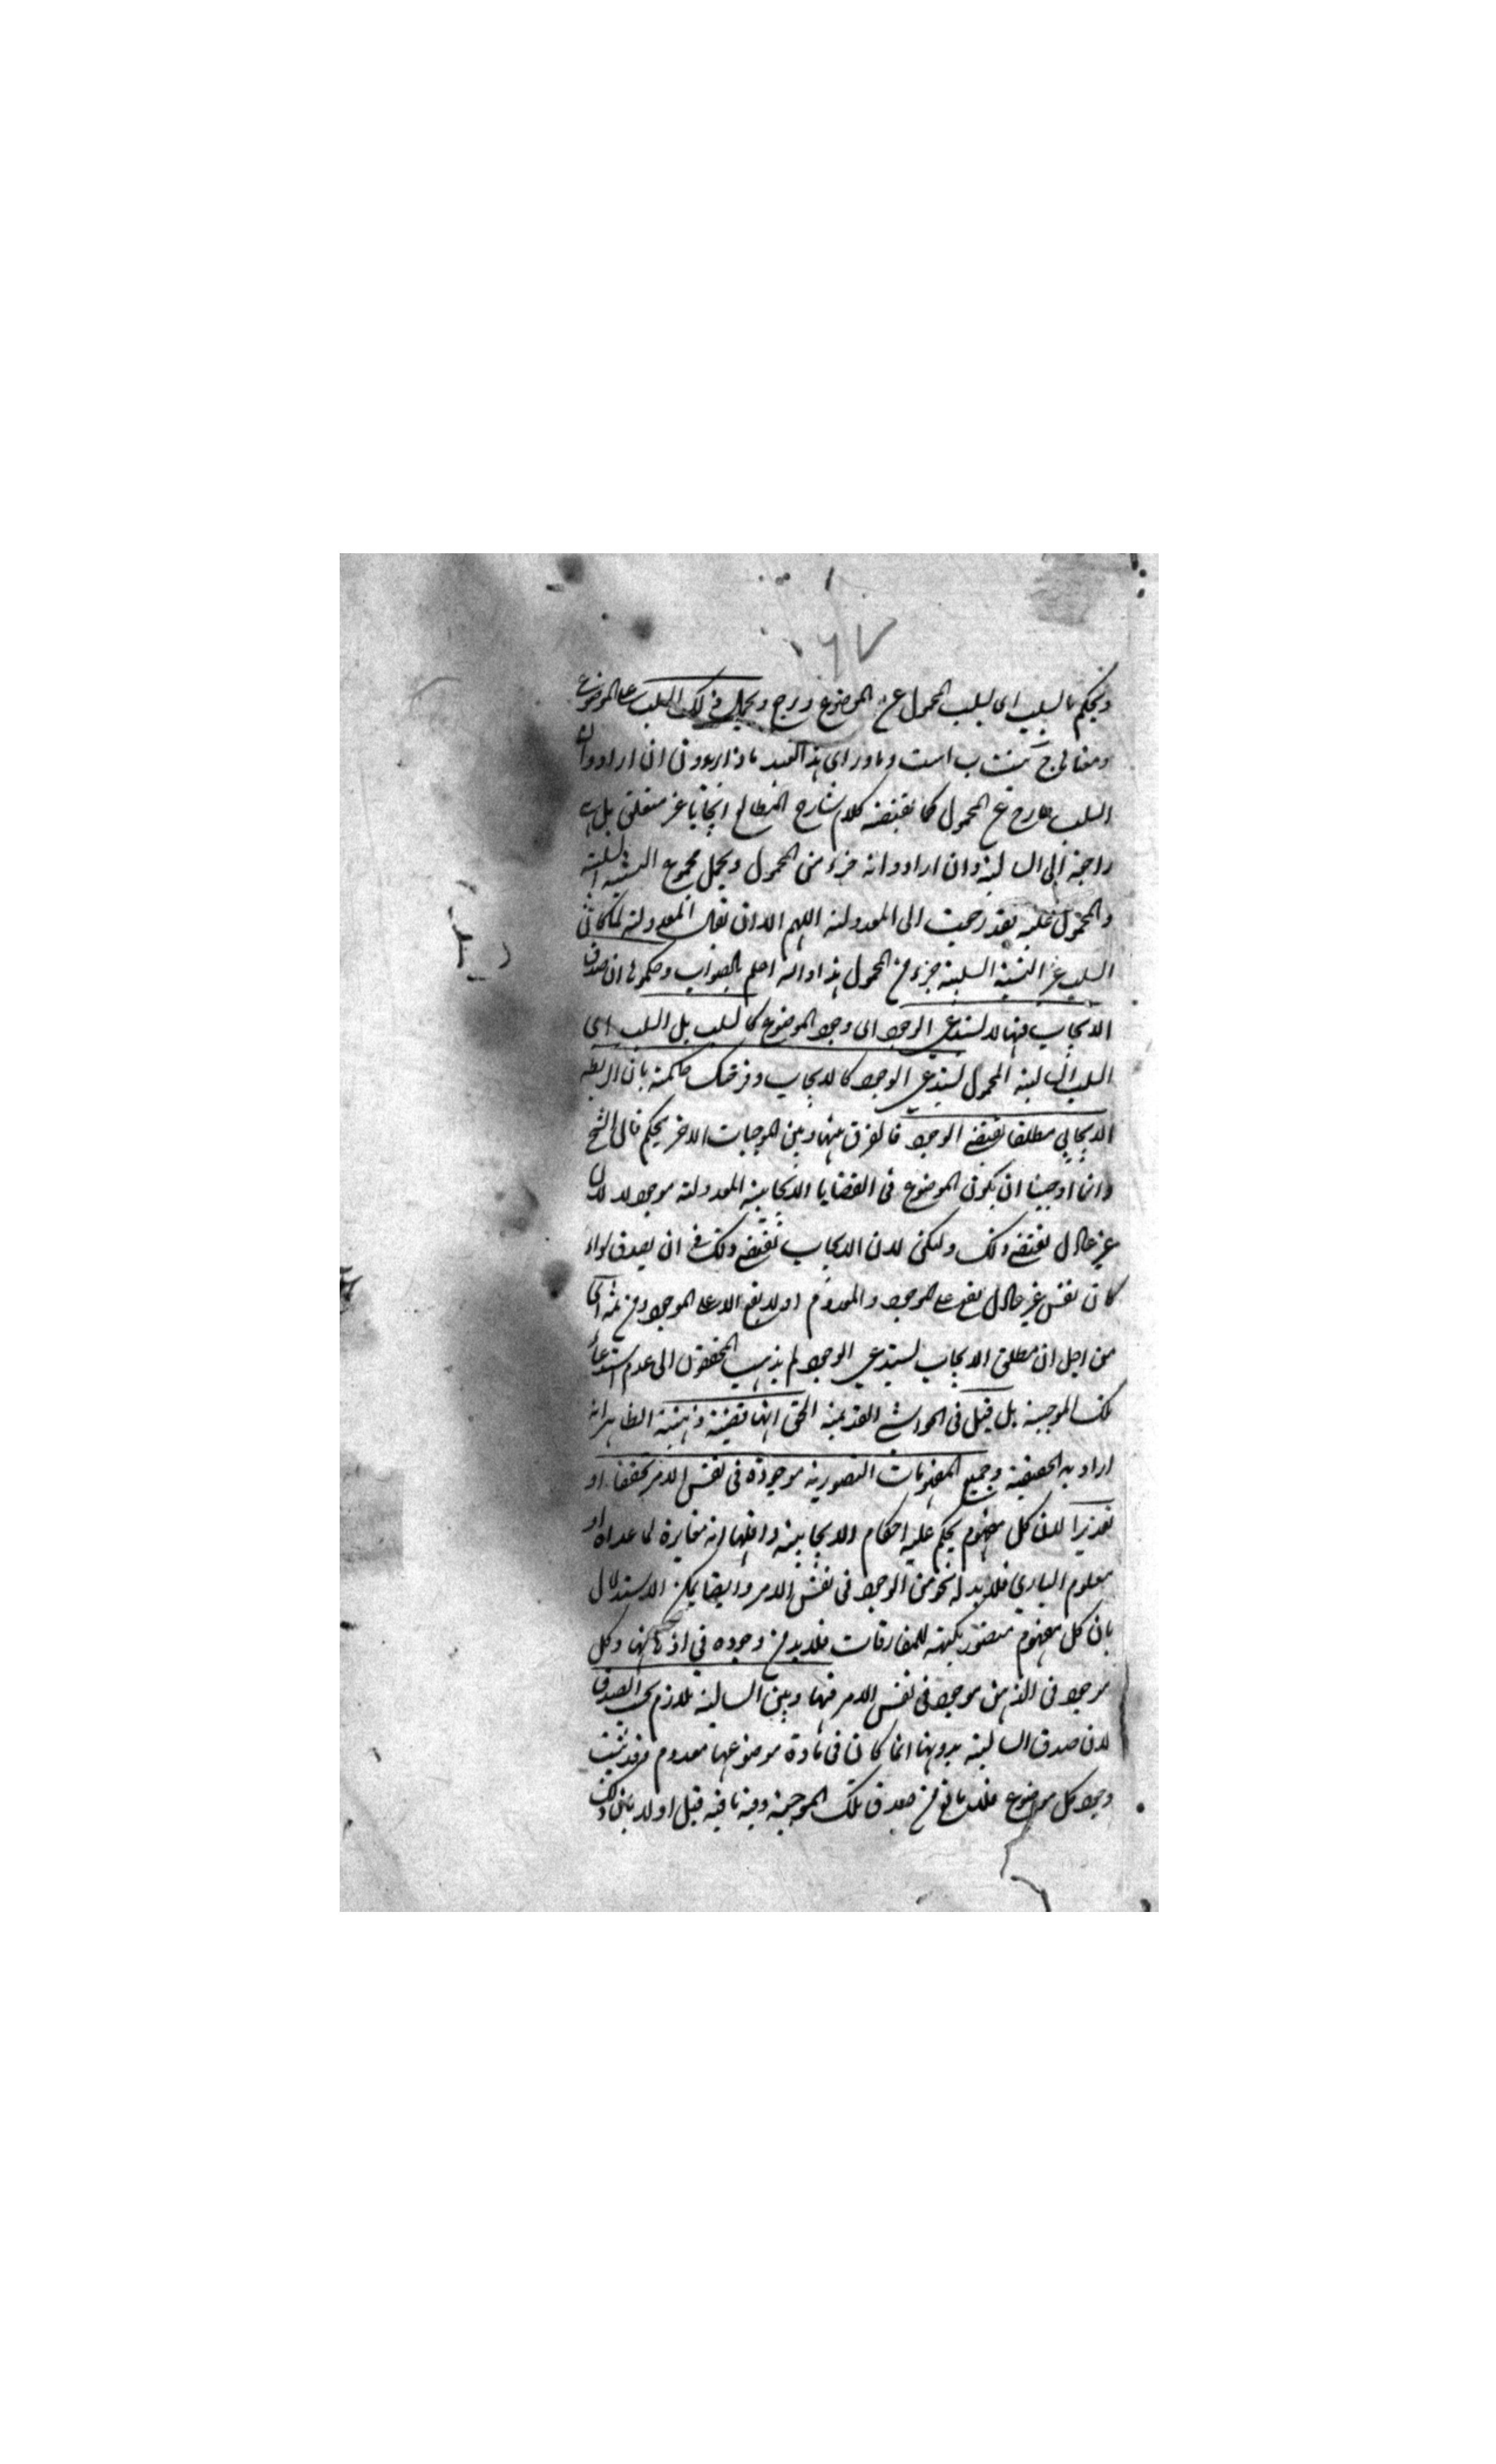 ٦٧
ويحكم بالسلب اى بسلب المحمول عن الموضوع ويرجع ويحمل ذلك السلب على الموضوع
السلب خارج عن المحمول كما يقتضيه كلام شارح المطالع ايجابا غير متعلق بل هى
راجعة الى السالبة وان ارادوا انه جزء من المحمول ويحمل مجموع النسبة السلبية
والمحمول عليه فقد رجعت الى المعدولة اللهم الا ان يقال المعدولة لما كان
السلب غير النسبة السلبية جزء من المحمول هذا والله اعلم بالصواب وحكموا بان صدق
الايجاب فيها لا يستدعى الوجود اى وجود الموضوع كالسلب بل السلب اى
السلب السالبة المحمول يستدعى الوجود كالايجاب وقريحتك حاكمة بان الربط
الايجابى مطلقا يقتضى الوجود فالفرق بينها وبين الموجبات الاخر تحكم قال الشيخ
وانما اوجبنا ان يكون الموضوع فى القضايا الايجابية المعدولة موجودا لا لان
غير عادل يقتضى ذلك ولكن لان الايجاب يقتضى ذلك فى ان يصدق سواء
كان نفس غير عادل يقع على الموجود والمعدوم او لا يقع الا على الموجود ومن ثمه اى
من اجل ان مطلق الايجاب يستدعى الوجود لم يذهب المحققون الى عدم استدعاء
تلك الموجبة بل قيل فى الحواشى القديمة الحق انها قضية ذهنية الظاهر انه
اراد به الحقيقية وجميع المفهومات التصورية موجودة فى نفس الامر تحقيقا او
تقديرا لان كل مفهوم يحكم عليه احكام الايجابية واقلها انه مغايرة لما عداه او
معلوم البارى فلا بد له نحو من الوجود فى نفس الامر وايضا يمكن الاستدلال
بان كل مفهوم متصور بكنهه للمفارقات فلا بد من وجوده فى اذهانها وكل
موجود فى الذهن موجود فى نفس الامر فبينها وبين السالبة تلازم بحسب الصدق
لان صدق السالبة بدونها انما كان فى مادة موضوعها معدوم وقد ثبت
وجود كل موضوع فلا مانع من صدق تلك الموجبة وفيه ما فيه قيل اولا يمنع ذلك